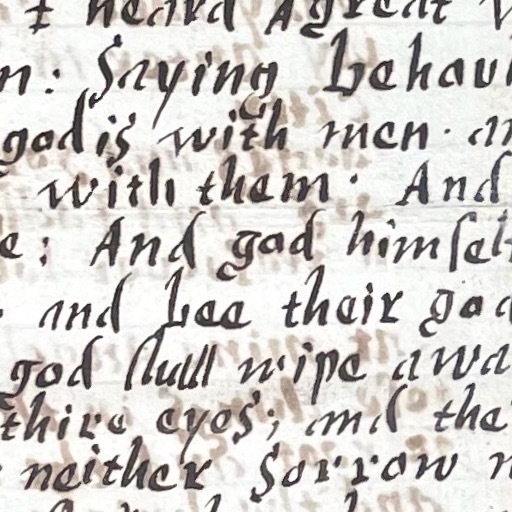 I heard A great
n: Saying behou
god is with men. an
with them. And
e: And god himself
and bee their god
god shall wipe awa
thire eyes; and the
neither Sorrow n